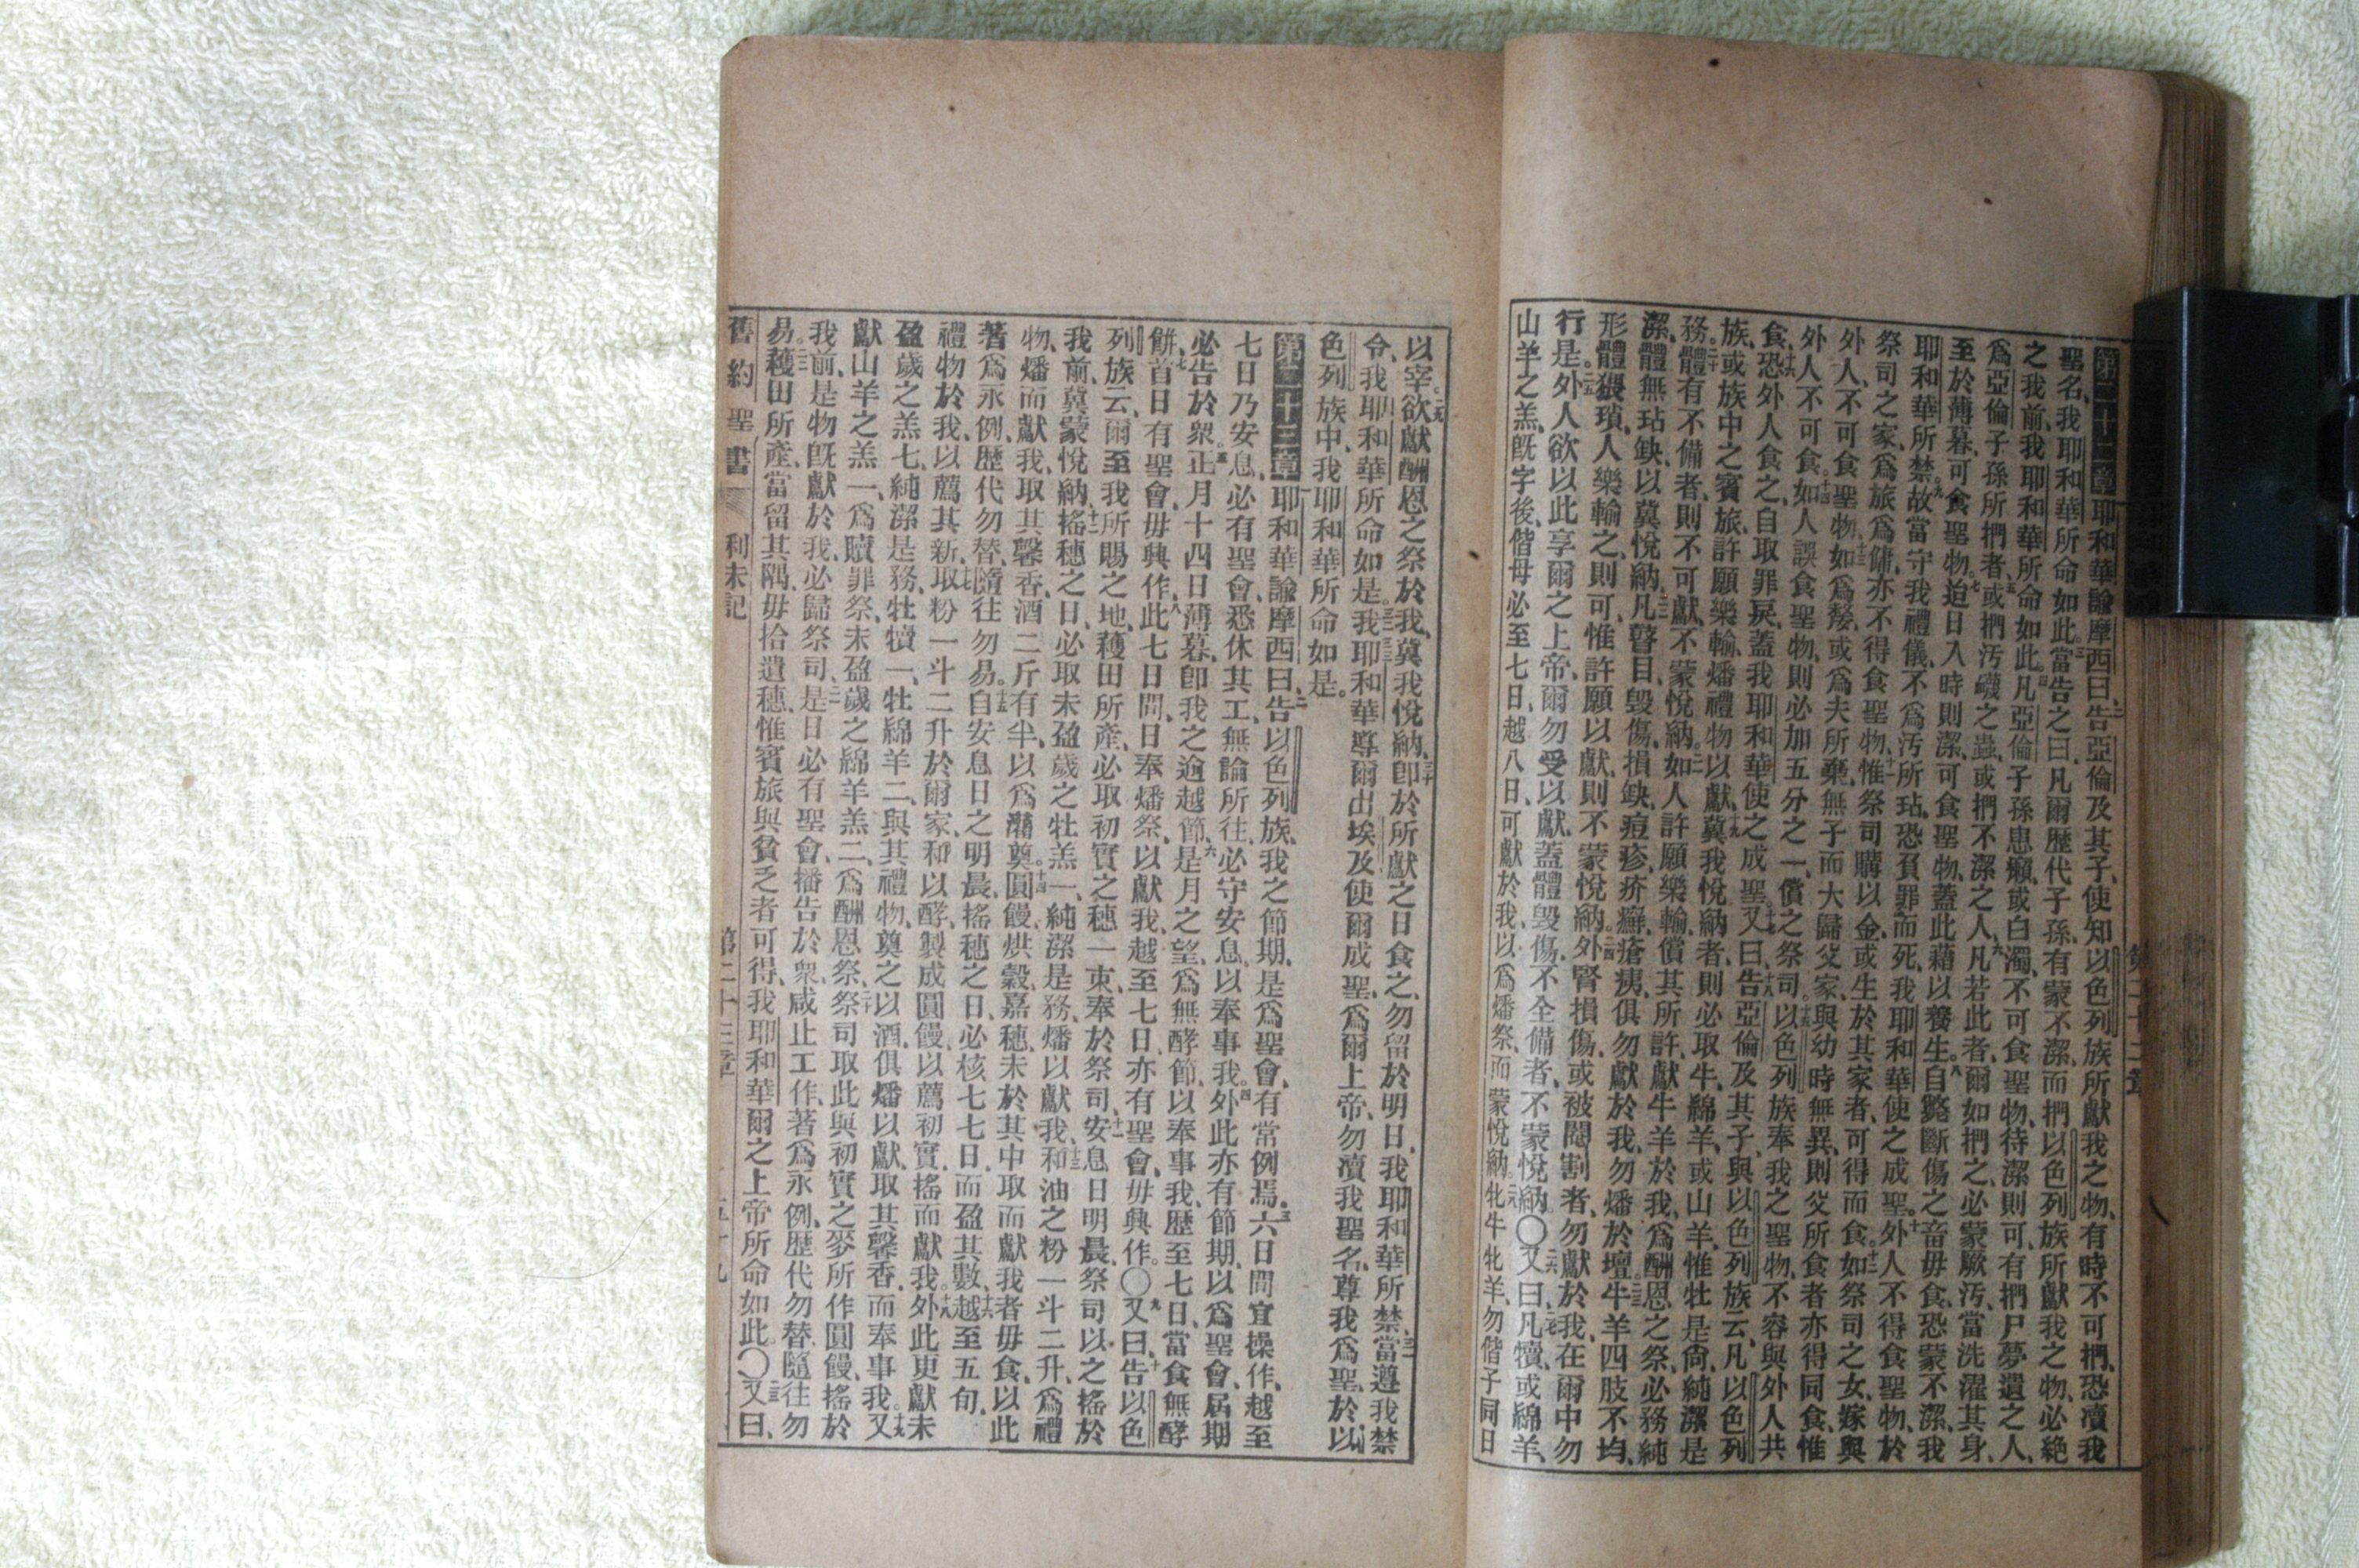 第二十二章耶和華諭摩西曰、二告亞倫及其子、使知以色列族所獻我之物、有時不可捫、恐瀆我
聖名、我耶和華所命如此、三當告之曰、凡爾歷代子孫、有蒙不潔、而捫以色列族所獻我之物、必絕
之我前、我耶和華所命如此。四凡亞倫子孫患癩、或白濁、不可食聖物、待潔則可、有捫尸夢遺之人、
爲亞倫子孫所捫者、五或捫汚磯之蟲、或捫不潔之人、六凡若此者、爾如捫之、必蒙厥汚、當洗濯其身、
至於薄暮、可食聖物。七迨日入時則潔、可食聖物、蓋此藉以養生。八自斃斷傷之畜毋食、恐蒙不潔、我
耶和華所禁。九故當守我禮儀、不爲汚所玷、恐負罪而死、我耶和華使之成聖。十外人不得食聖物、於
祭司之家、爲旅爲傭、亦不得食聖物、十一惟祭司購以金、或生於其家者、可得而食。十二如祭司之女、嫁與
外人、不可食聖物、十三如爲嫠、或爲夫所棄、無子而大歸父家、與幼時無異、則父所食者亦得同食、惟
外人不可食。十四如人誤食聖物、則必加五分之一、償之祭司。十五以色列族奉我之聖物、不容與外人共
食、十六恐外人食之、自取罪戾、蓋我耶和華使之成聖。十七又曰、十八告亞倫及其子、與以色列族云、凡以色列
族、或族中之賓旅、許願樂輸、燔禮物以獻、十九冀我悅納者、則必取牛綿羊、或山羊、惟牡是尙、純潔是
務。二十體有不備者、則不可獻、不蒙悅納。二一如人許願樂輸、償其所許、獻牛羊於我、爲酬恩之祭、必務純
潔、體無玷缺、以冀悅納、二二凡瞽目毀傷、損缺痘疹疥癬瘡痍、俱勿獻於我、勿燔於壇。二三牛羊四肢不均、
形體猥瑣、人樂輸之則可、惟許願以獻、則不蒙悅納。二四外腎損傷、或被閹割者、勿獻於我、在爾中勿
行是。二五外人欲以此享爾之上帝、爾勿受以獻、蓋體毀傷、不全備者、不蒙悅納。〇二六又曰、二七凡犢或綿羊、
山羊之羔、旣字後、偕母必至七日、越八日、可獻於我、以爲燔祭、而蒙悅納。二八牝牛牝羊、勿偕子同日
以宰。二九欲獻酬恩之祭於我、冀我悅納、三十卽於所獻之日食之、勿留於明日、我耶和華所禁、三一當遵我禁
令、我耶和華所命如是。三二三三我耶和華導爾出埃及、使爾成聖、爲爾上帝、勿瀆我聖名、尊我爲聖、於以
色列族中、我耶和華所命如是。
第二十三章耶和華諭摩西曰、二告以色列族、我之節期、是爲聖會、有常例焉。三六日間宜操作、越至
七日、乃安息、必有聖會、悉休其工、無論所往、必守安息、以奉事我。四外此亦有節期、以爲聖會、屆期
必告於衆。五正月十四日薄暮、卽我之逾越節、六是月之望、爲無酵節、以奉事我、歷至七日、當食無酵
餅、七首日有聖會、毋興作、八此七日間、日奉燔祭、以獻我、越至七日、亦有聖會、毋興作。〇九又曰、十告以色
列族云、爾至我所賜之地、穫田所產、必取初實之穗一束、奉於祭司、十一安息日明晨、祭司以之搖於
我前、冀蒙悅納、十二搖穗之日、必取未盈歲之牡羔一、純潔是務、燔以獻我、十三和油之粉一斗二升、爲禮
物、燔而獻我、取其馨香、酒二斤有半、以爲灌奠。十四圓饅烘穀嘉穗、未於其中取而獻我者毋食、以此
著爲永例、歷代勿替、隨往勿易。十五自安息日之明晨、搖穗之日、必核七七日、而盈其數、十六越至五旬、
禮物於我、以薦其新、十七取粉一斗二升、於爾家、和以酵、製成圓饅、以薦初實、搖而獻我。十八外此更獻未
盈歲之羔七、純潔是務、牡犢一、牡綿羊二、與其禮物、奠之以酒、俱燔以獻、取其馨香、而奉事我。十九又
獻山羊之羔一、爲贖罪祭、未盈歲之綿羊羔二、爲酬恩祭、二十祭司取此、與初實之麥所作圓饅、搖於
我前、是物旣獻於我、必歸祭司。二一是日必有聖會、播告於衆、咸止工作、著爲永例、歷代勿替、隨往勿
易。二二穫田所產、當留其隅、毋拾遺穗、惟賓旅與貧乏者可得、我耶和華爾之上帝所命如此。〇二三又曰、
舊約聖書 利未記 第二十三章